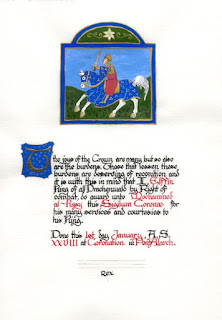 the joys of the Crown are many, but so also
are the burdens. Those that lessen these
burdens are deserving of recognition and
it is with this in mind that I, Griffin
King of Drachenwald by Right of
Combat, do award unto Mohammed
al- this Sigillum Coronae for
his many services and courtesies to
his King.
Done this 1st day January A.S.
XXVIII at Coronation in
Rex